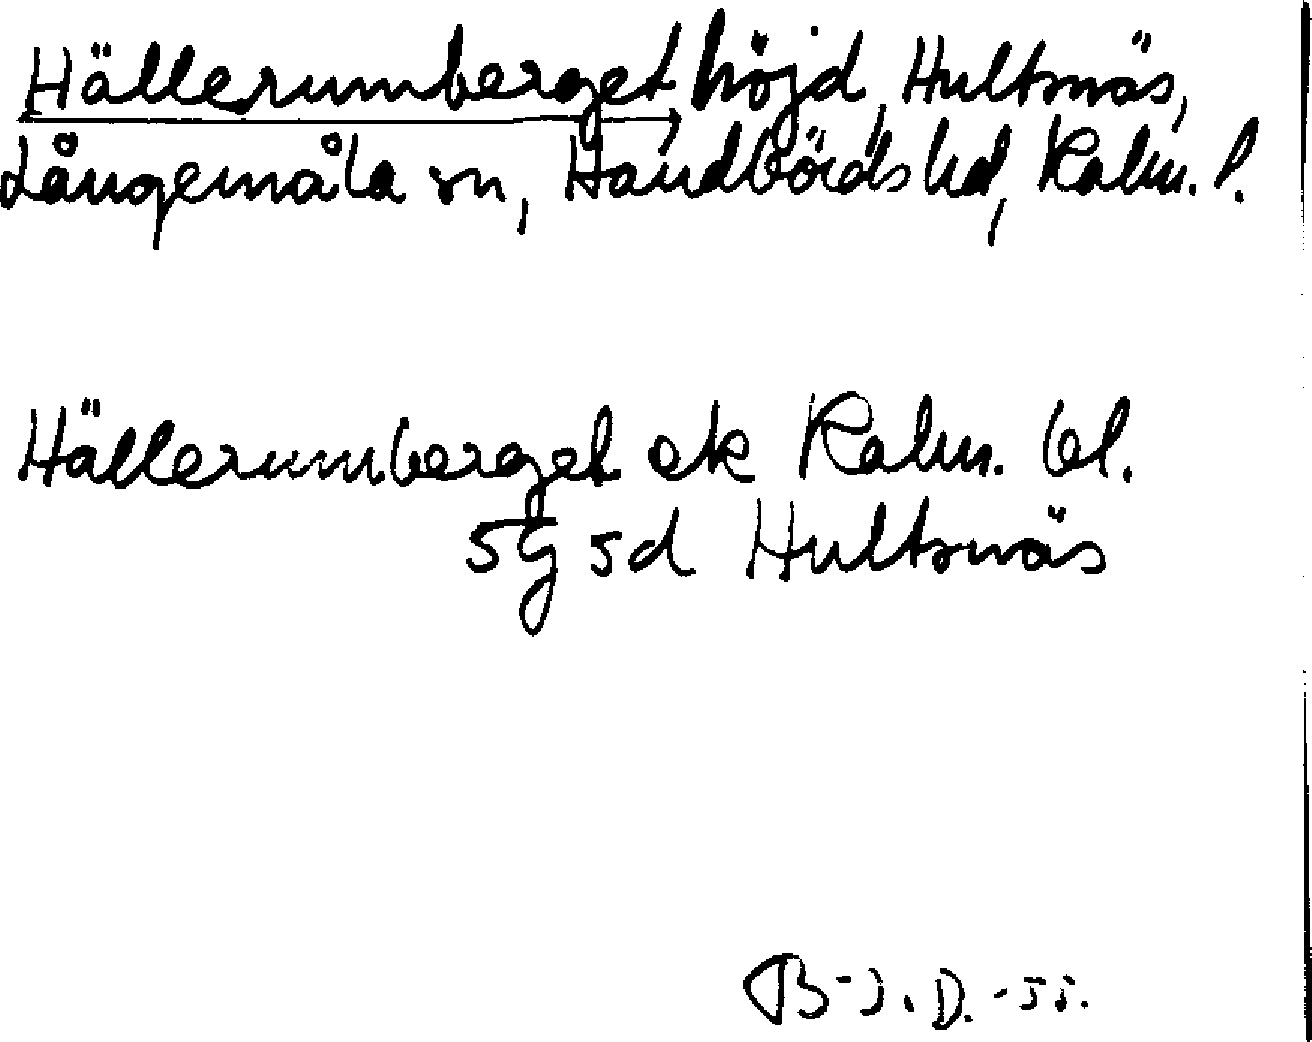 Hällerumberget, höjd, Hultsnäs,
Långemåla sn, Handbörds hd, Kalm. l.
Hällerumberget ek Kalm. bl.
5G5d Hultsnäs
B-J.D.-55.